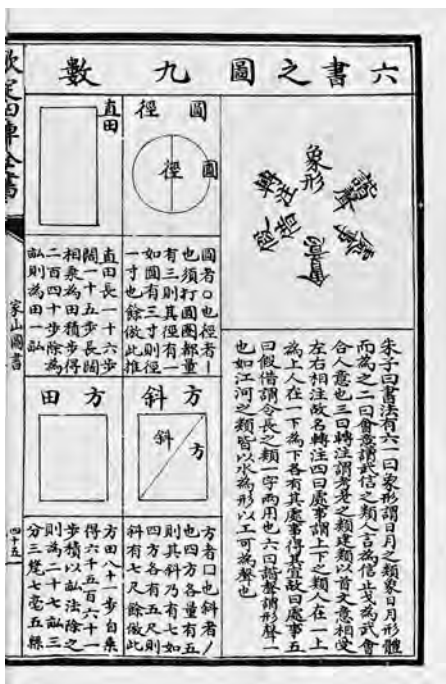 六書之圖九數
象形
諧聲
處事
會意
假借
轉注
朱子曰書法有六一曰象形謂日月之類象日月形體
而為之二曰會意謂武信之類人言為信止戈為武會
合人意也三曰轉注謂考老之類建類以首文意相受
左右相注故名轉注四曰處事謂上下之類人在一上
為上人在一下為下各有其處事得其宜故曰處事五
曰假借謂令長之類一字兩用也六曰諧聲謂形聲一
也如江河之類皆以水為形以工可為聲也
圓徑
圓
徑
圓者○也徑者丨
也須打圓圈都量
有三則其徑有一
如圓有三寸則徑
一寸也餘倣此推
直田
直田長一十六步
闊一十五步長闊
相乘為田積步得
二百四十步除為
畝則為田一畝
方斜
方
斜
方者口也斜者丿
也四方各量有五
則其斜乃有七如
四方各有五尺則
斜有七尺餘倣此
方田
方田八十一步自乘
得六千五百六十一
步積以畝法除之
則為二十七畝三
分三釐七毫五絲
欽定四庫全書
家山圖書
四十五